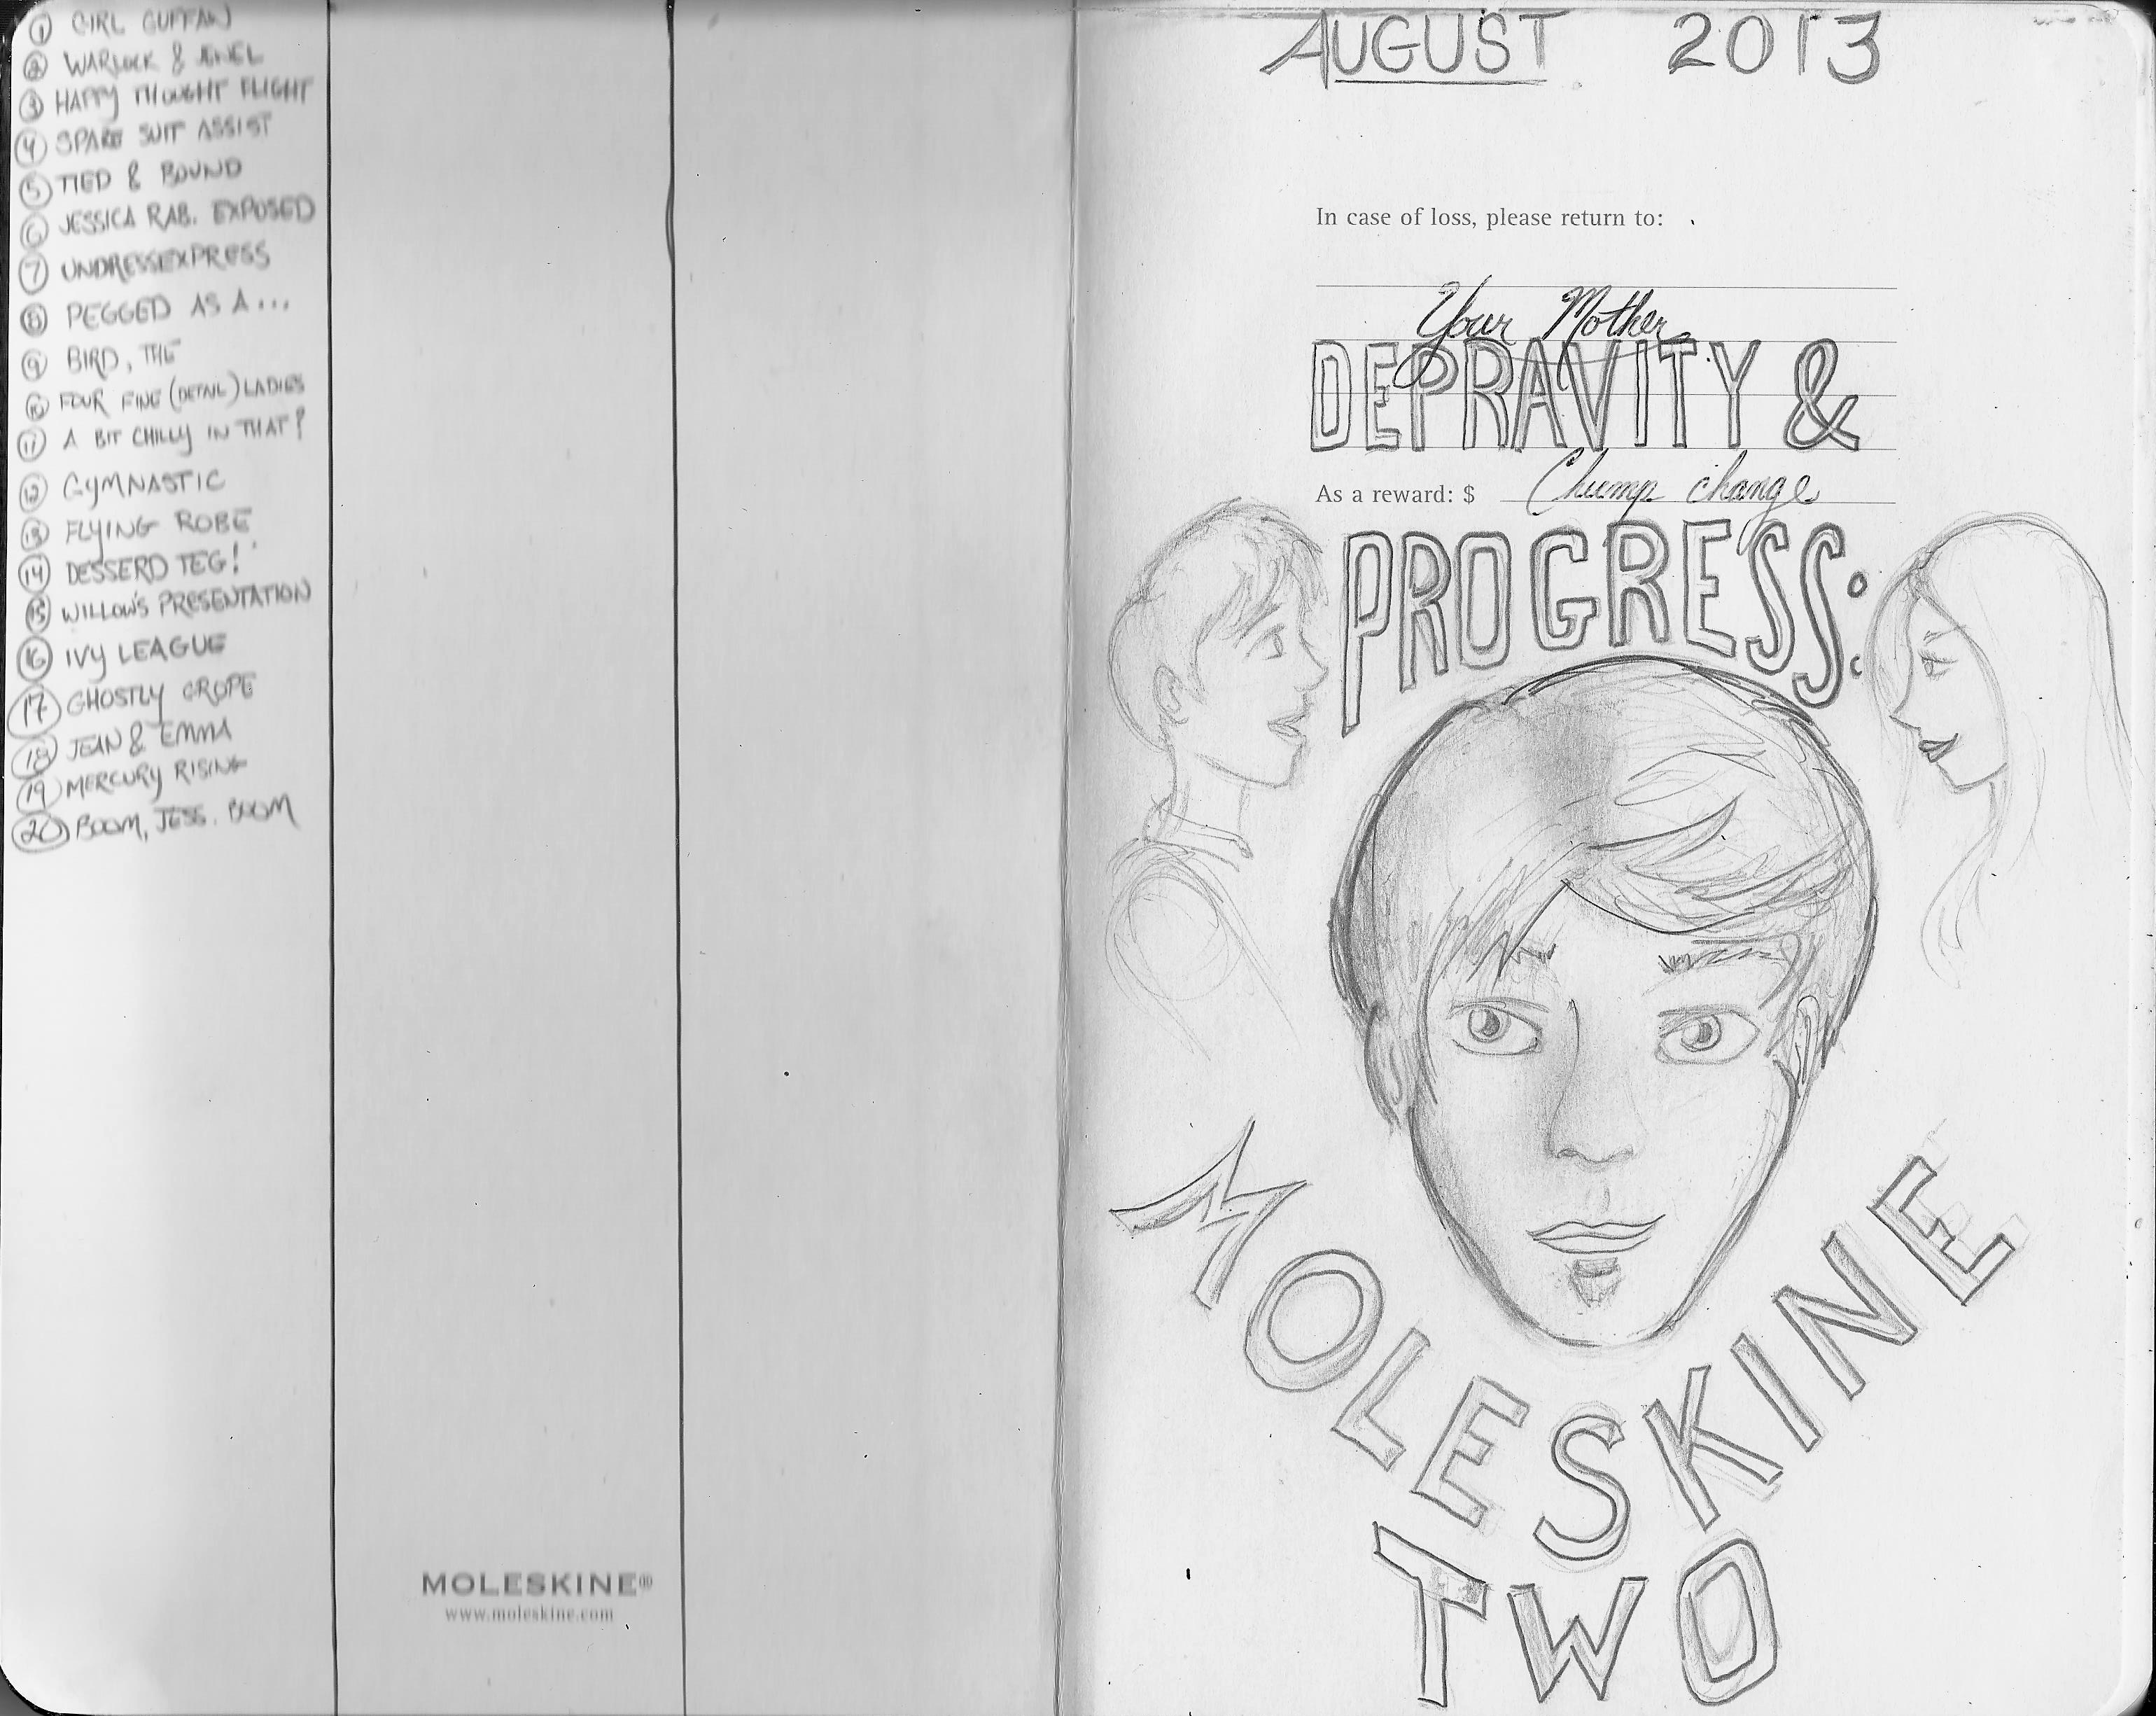 ① GIRL GUFFAW
② WARLOCK & JEWEL
③ HAPPY THOUGHT FLIGHT
④ SPARE SUIT ASSIST
⑤ TIED & BOUND
⑥ JESSICA RAB. EXPOSED
⑦ UNDRESSEXPRESS
⑧ PEGGED AS A...
⑨ BIRD, THE
⑩ FOUR FINE (DETAIL) LADIES
⑪ A BIT CHILLY IN THAT?
⑫ GYMNASTIC
⑬ FLYING ROBE
⑭ DESSERD TEG!
⑮ WILLOW'S PRESENTATION
⑯ IVY LEAGUE
⑰ GHOSTLY GROPE
⑱ JEAN & EMMA
⑲ MERCURY RISING
⑳ BOOM, JESS. BOOM
MOLESKINE®
www.moleskine.com
AUGUST 2013
In case of loss, please return to:
Your Mother
DEPRAVITY &
As a reward: $ Chump change
PROGRESS:
MOLESKINE
TWO